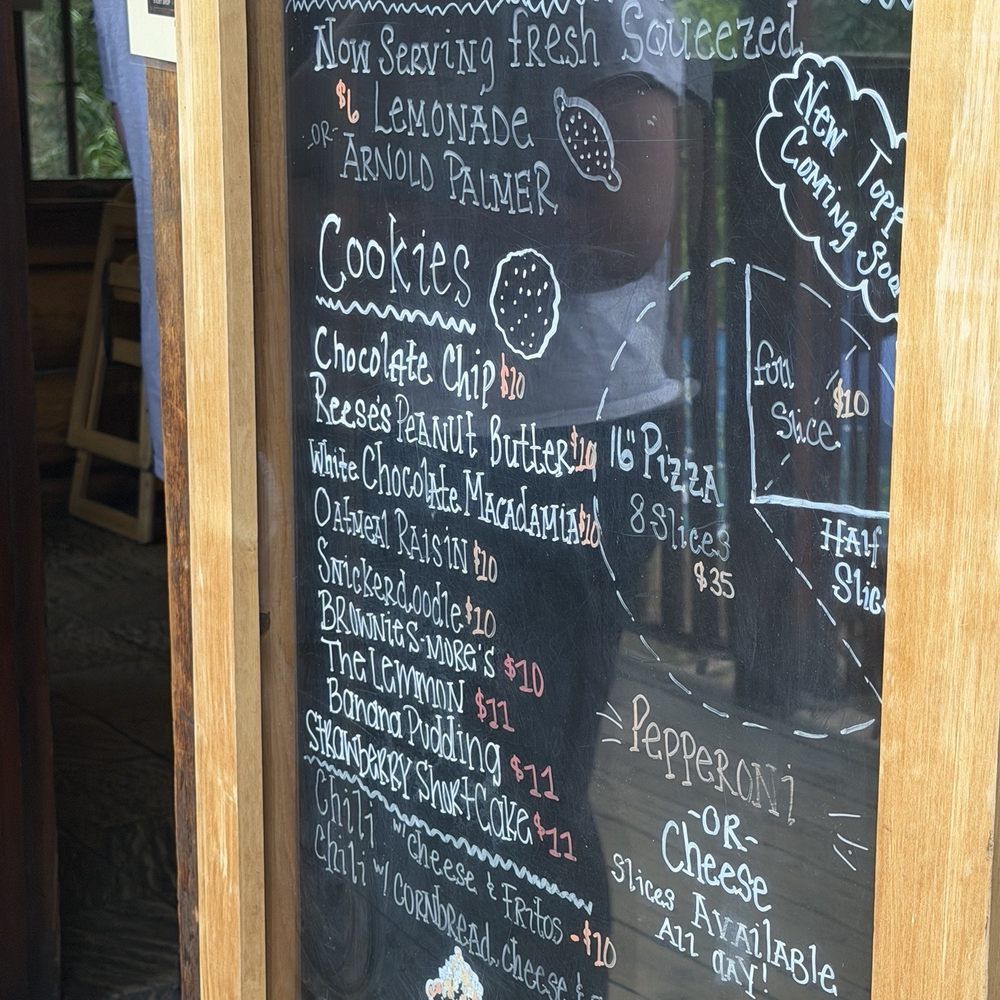 Now Serving fresh Squeezed
$6 LEMONADE
-OR- ARNOLD PALMER
New Topp
Coming Soon
Cookies
Chocolate Chip $10
Reese's Peanut Butter $10
White Chocolate Macadamia $10
Oatmeal Raisin $10
Snickerdoodle $10
Brownie S-more's $10
The Lemmon $11
Banana Pudding $11
Strawberry Shortcake $11
Chili w/ cheese & Fritos - $10
Chili w/ Cornbread, cheese &
full $10
Slice
16" Pizza
8 Slices
$35
Half
Slic
Pepperoni
-OR-
Cheese
Slices Available
All day!